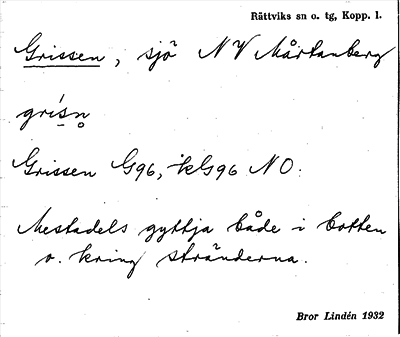 Rättviks sn o. tg, Kopp. l.
Grissen, sjö NV Mårtanberg
grísn̥
Grissen G96, kG96 NO.
Mestadels gyttja både i botten
o. kring stränderna.
Bror Lindén 1932